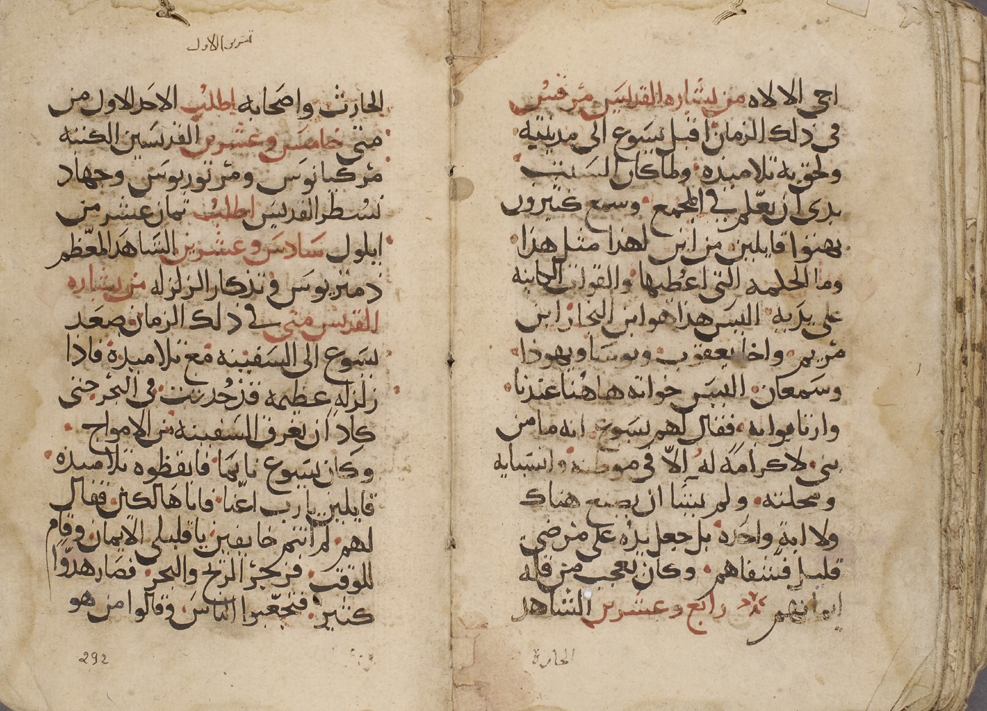 اخى الالاه من بشاره القديس مرقس
فى دلك الزمان اقبل يسوع الى مدينته
ولحقوبه تلاميذه ولما كان السبت
بدى ان يعلم فى المجمع وسمع كثيرون
بهتوا قايلين من اين لهذا مثل هذا
وما الحكمه التى اعطيها والقوات الكاينه
على يديه اليس هذا هو ابن النجار ابن
مريم واخا يعقوب ويوسا ويهوذا
وسمعان اليس خواته هاهنا عندنا
وارتابوا به فقال لهم يسوع انه ما من
نبى لا كرامة له الّا فى موطنه وانسبايه
ومحلته ولم يشا ان يصنع هناك
ولا ايه واحده بل جعل يده على مرضى
قليل فشفاهم وكان يعجب من قله
ايمانهم رابع وعشرين الشاهد
الحارث
تشرين الاول
الحارث واصحابه اطلب الاحد الاول من
متى خامس وعشرين القديسين الكتبه
مركيانوس ومرتوريوس وجهاد
نسطر القديس اطلب ثمان عشر من
ايلول سادس وعشرين الشاهد المعظم
دمتريوس وتذكار الزلزله من بشاره
القديس متى فى دلك الزمان صعد
يسوع الى السفينه مع تلاميذه فاذا
زلزله عظيمه قد حدثت فى البحر حتى
كاد ان يغرق السفينه من الامواج
وكان يسوع نايما فايقظوه تلاميذه
قايلين يا رب اغثنا فانا هالكين فقال
لهم لم انتم خايفين يا قليلى الايمان وقام
للوقت فزجر الريح والبحر فصار هدوًا
كثير فتعجبوا الناس وقالوا من هو
292